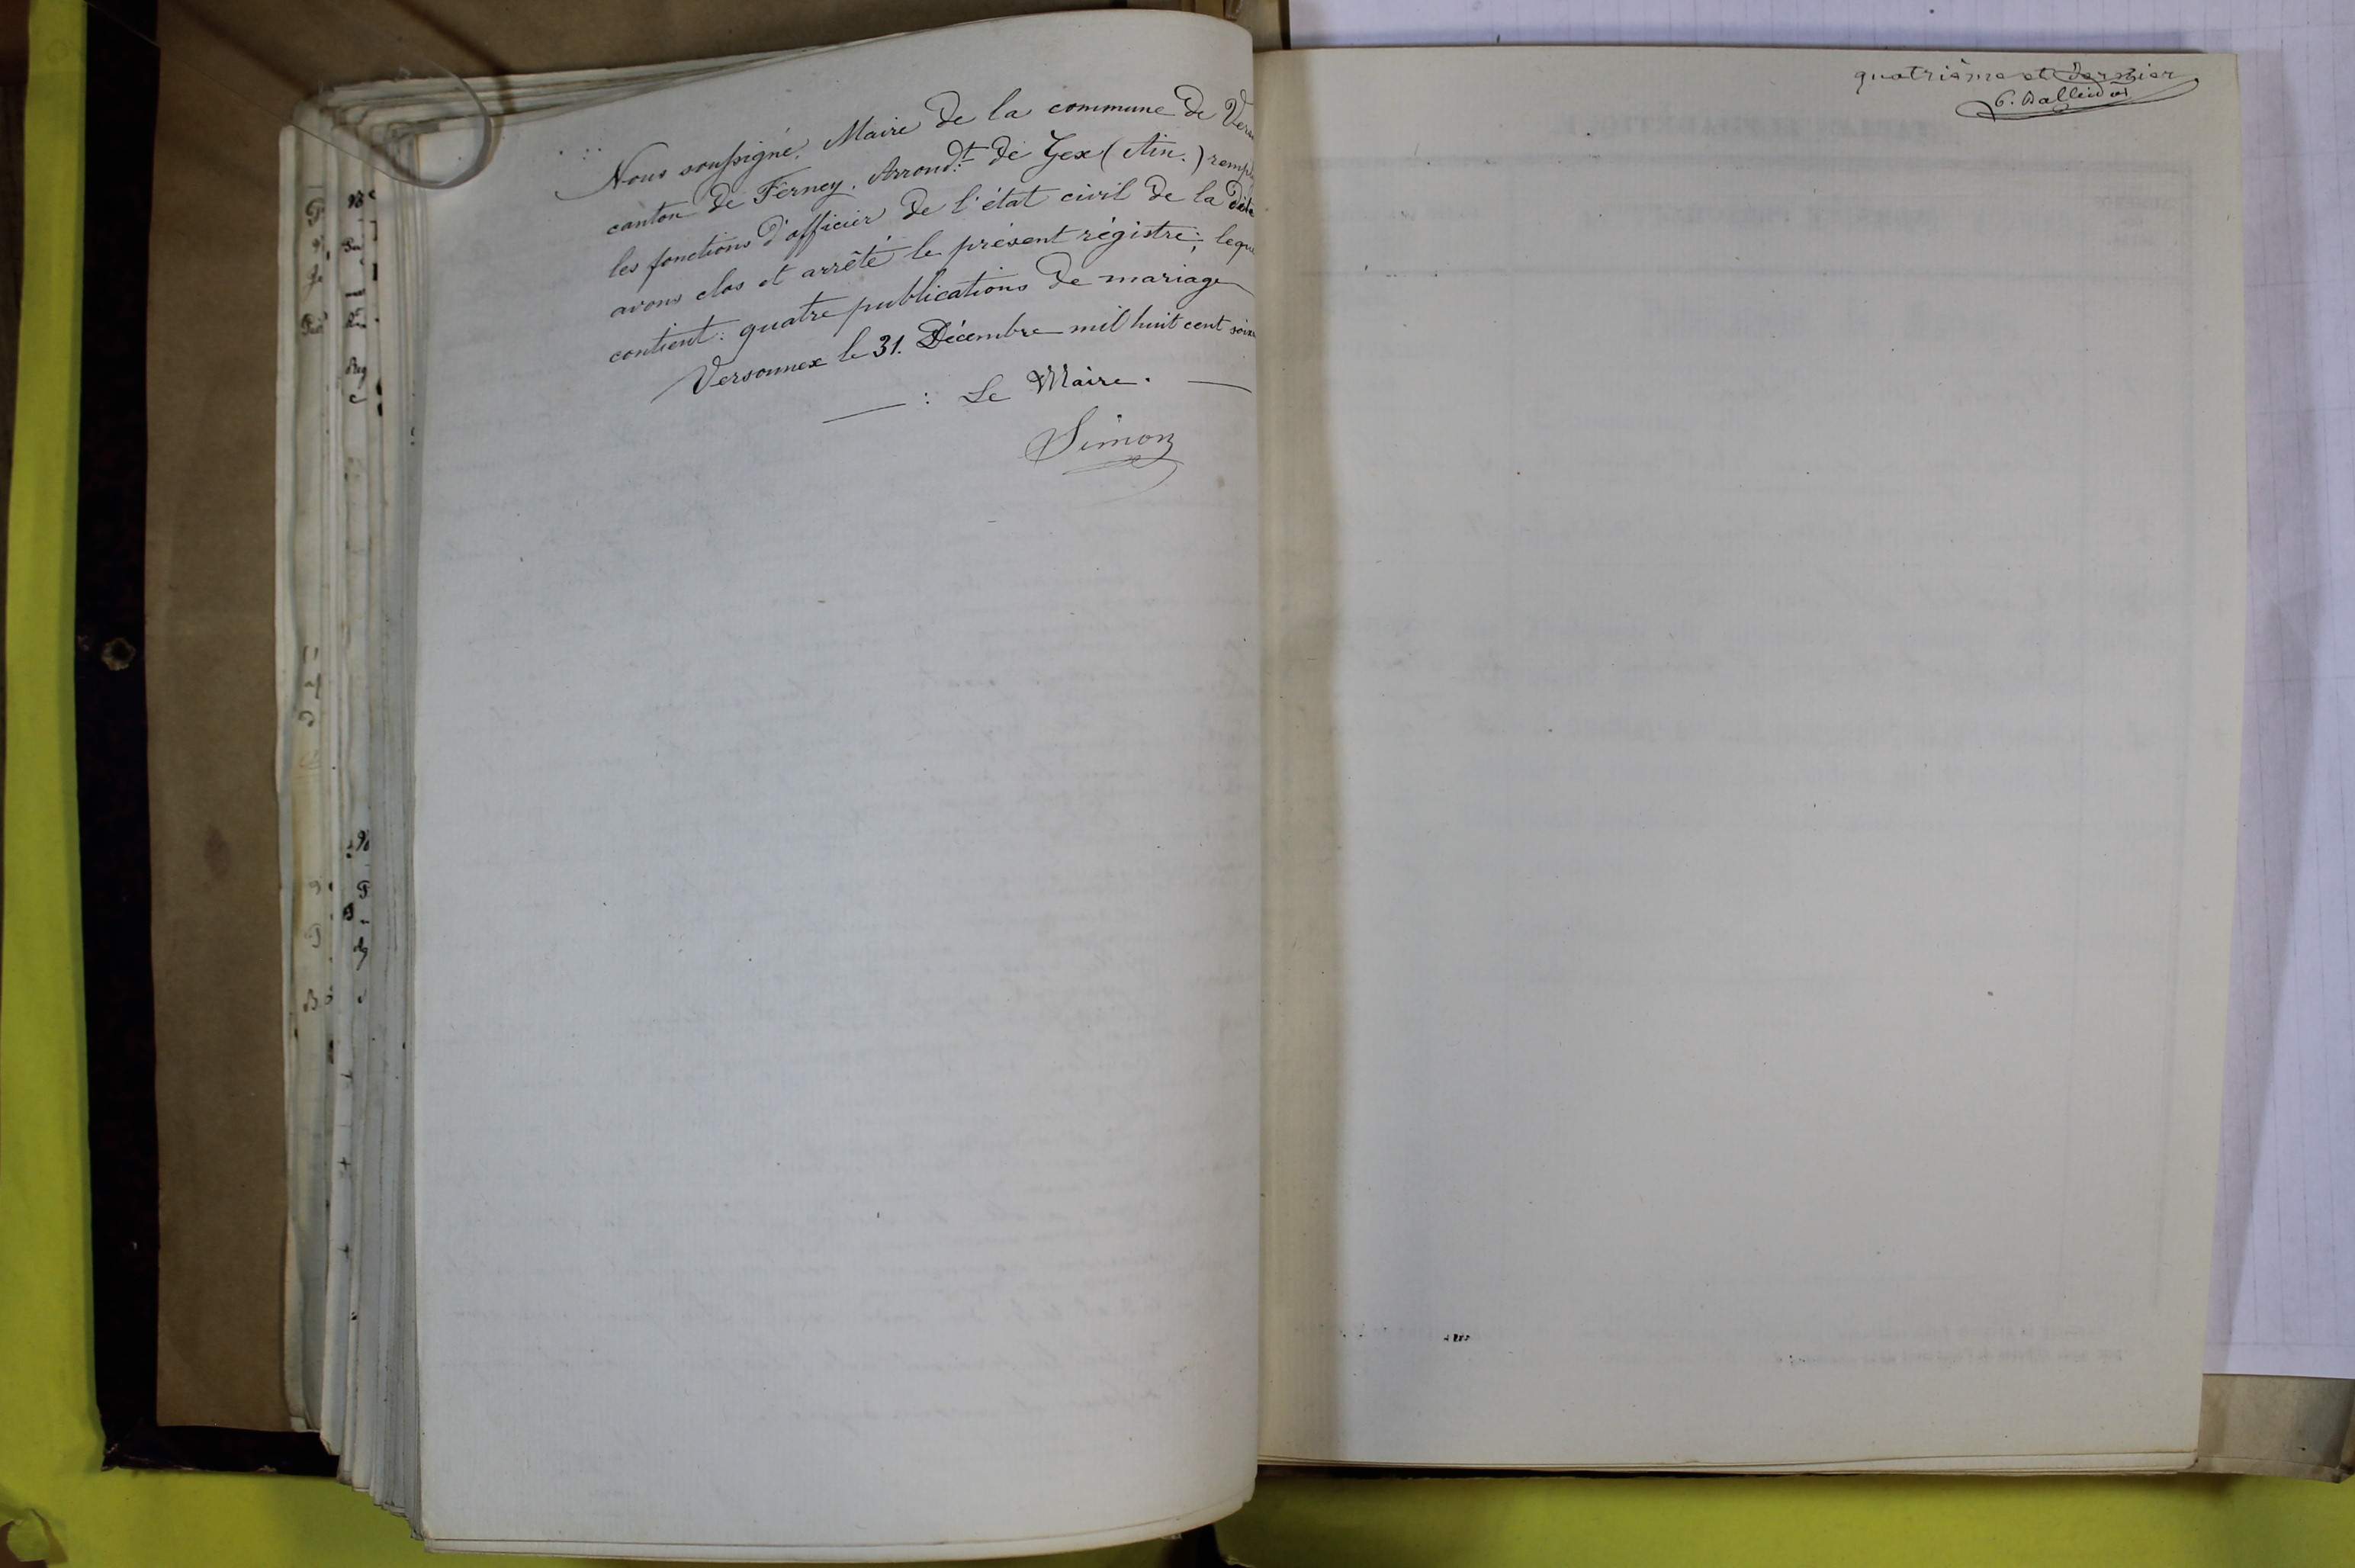 Nous soussigné, Maire de la commune de Vers
canton de Ferney, Arrondt. de Gex (Ain.) rempl
les fonctions d'officier de l'état civil de la dite
avons clos et arrêté le présent régistre; leque
contient: quatre publications de mariage
Versonnex le 31. Décembre mil huit cent soix
: Le Maire.
Simon
quatrième et dernier